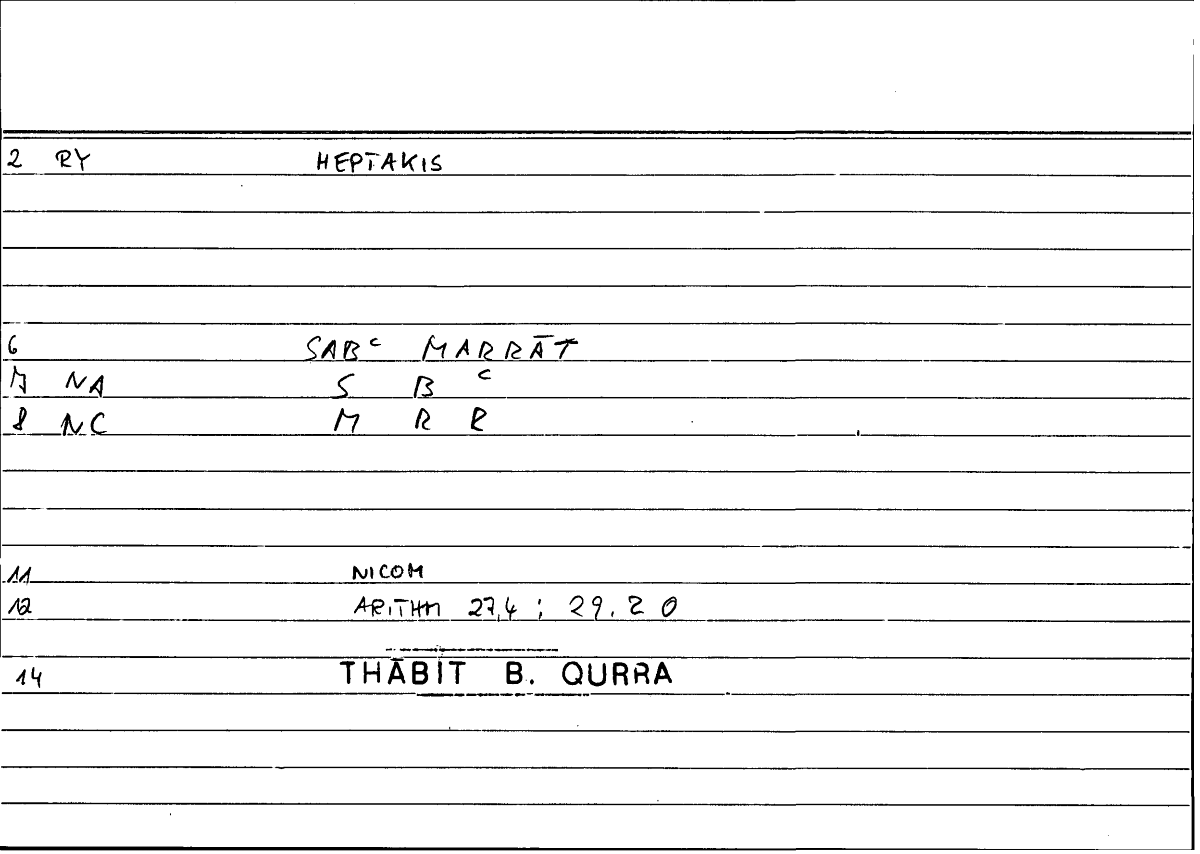 2 RY HEPTAKIS
6 SABᶜ MARRĀT
7 NA S B ᶜ
8 NC M R R
11 NICOM
12 ARITHM 27,4 ; 29.20
14 THĀBIT B. QURRA